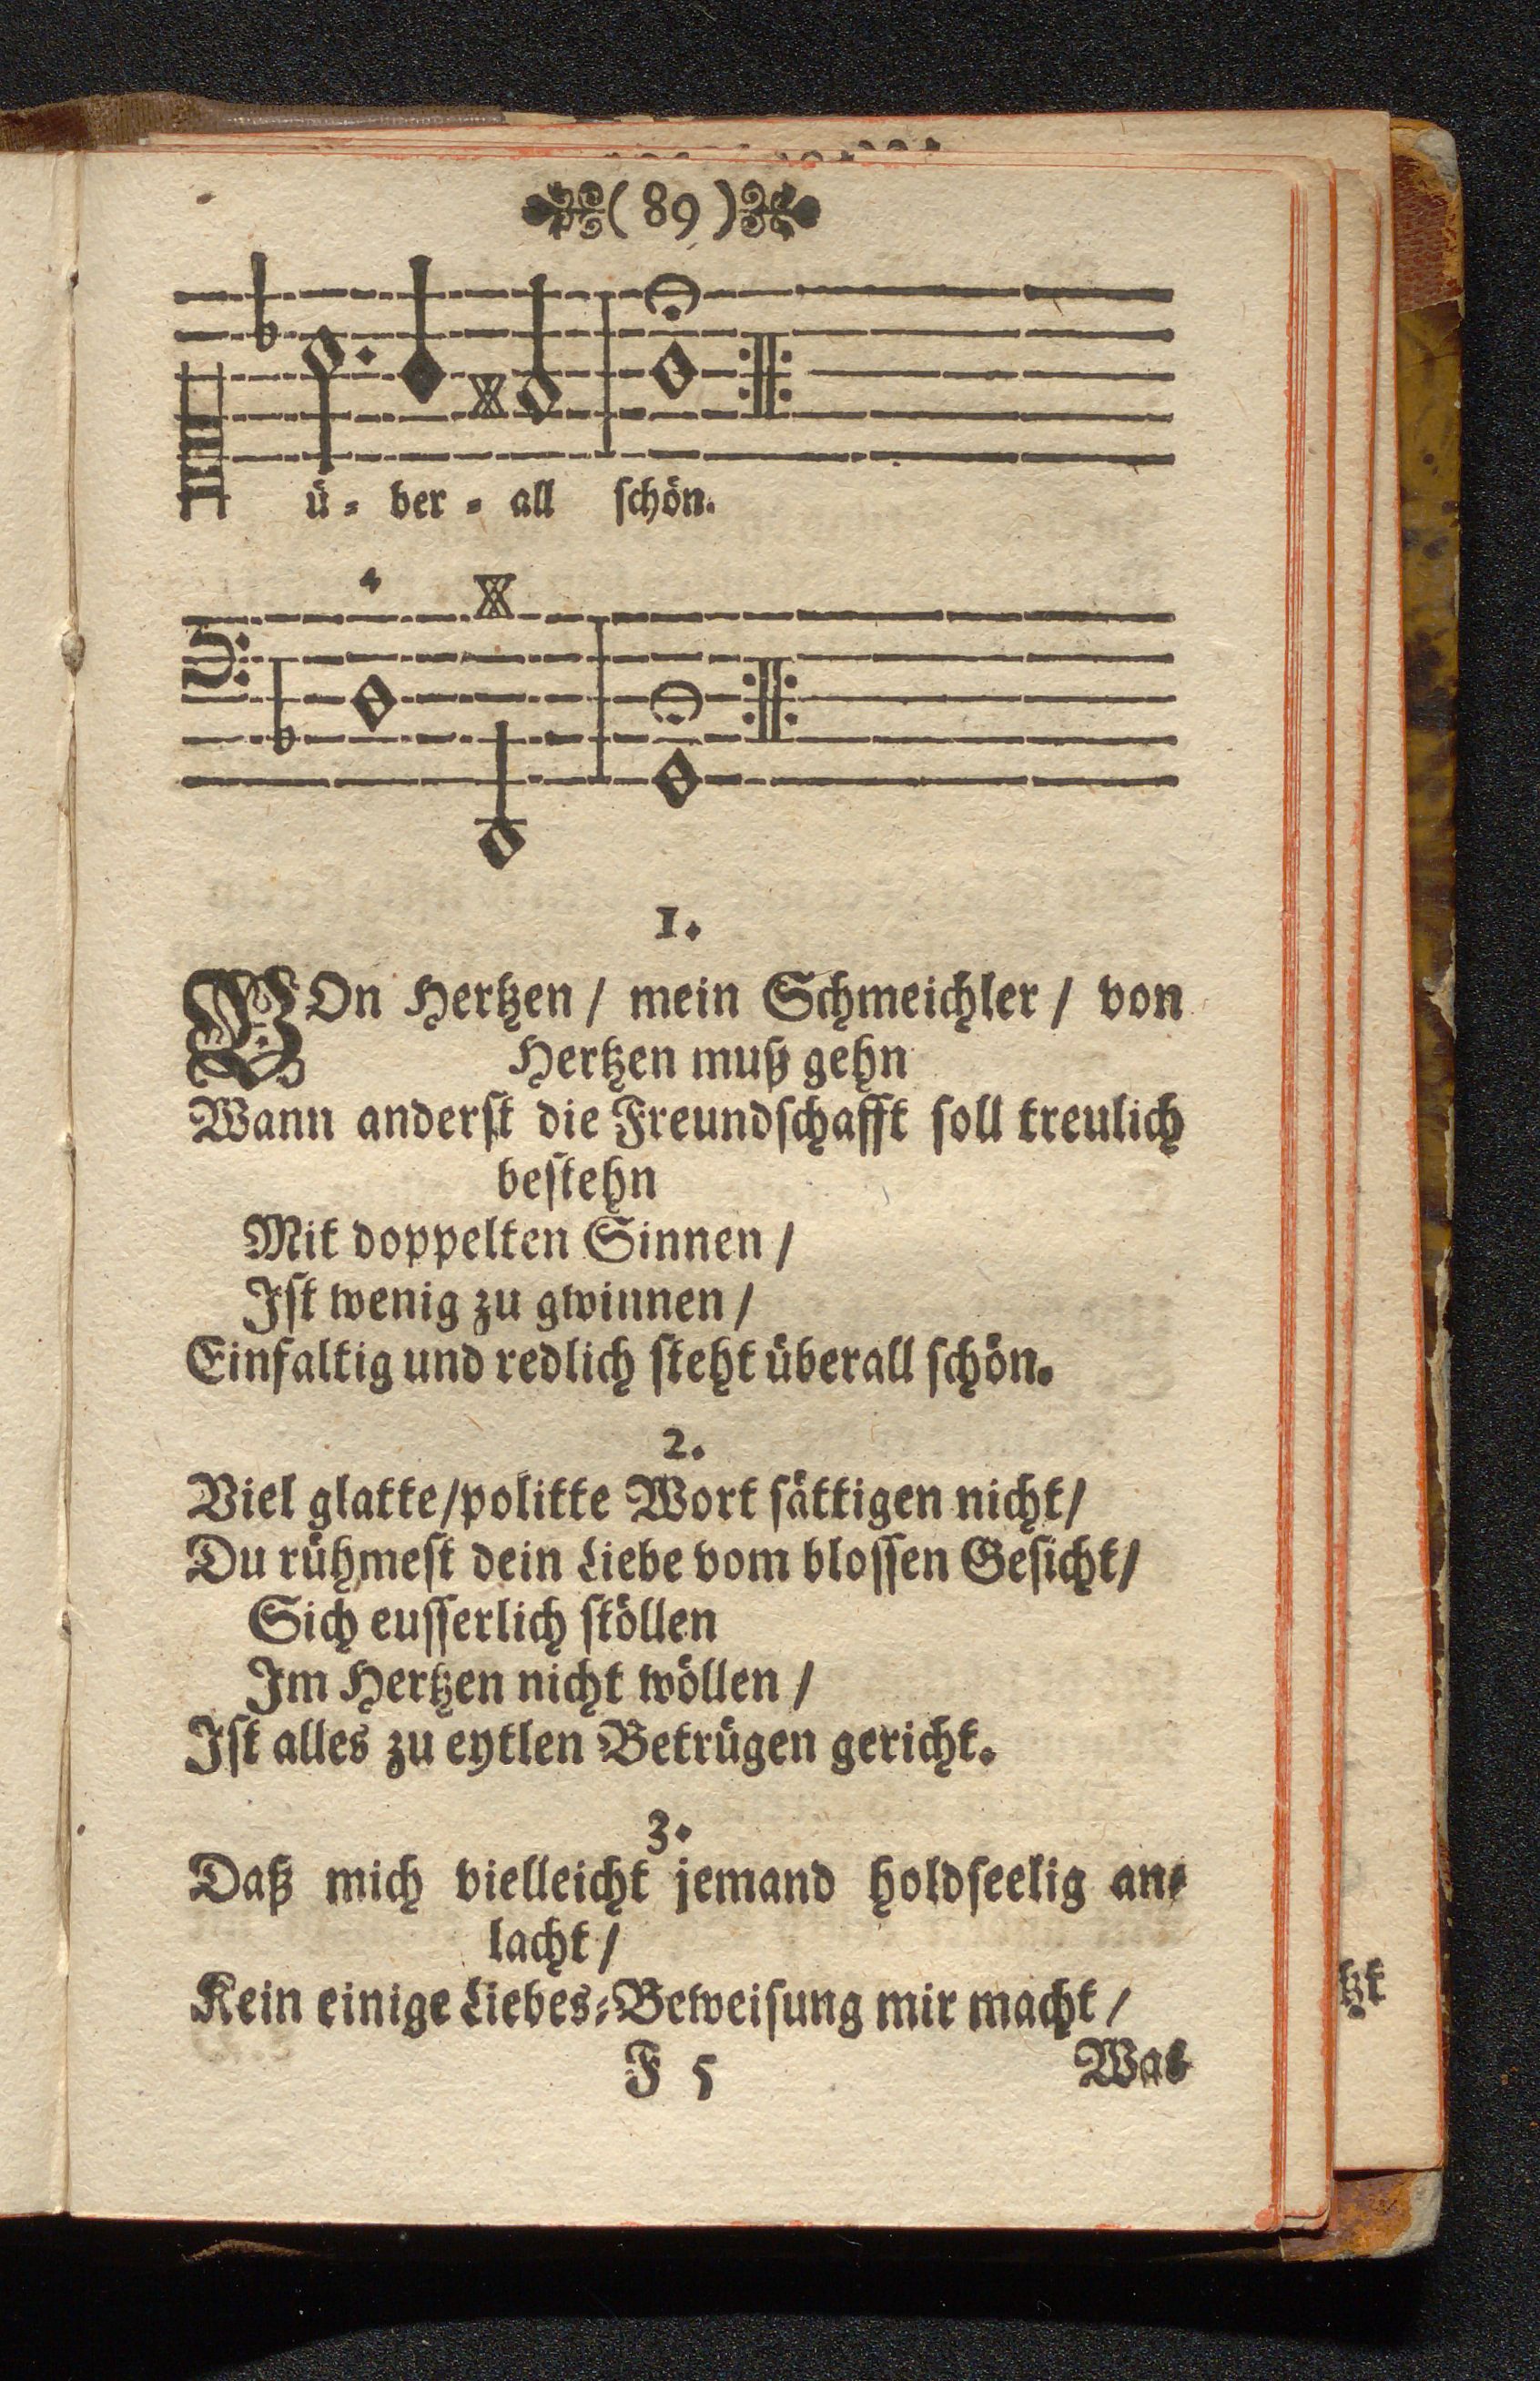 (89)
ü- ber- all schön.
4
1.
VOn Hertzen / mein Schmeichler / von
Hertzen muß gehn
Wann anderst die Freundschafft soll treulich
bestehn
Mit doppelten Sinnen /
Ist wenig zu gwinnen /
Einfaltig und redlich steht überall schön.
2.
Viel glatte/politte Wort sättigen nicht/
Du rühmest dein Liebe vom blossen Gesicht/
Sich eusserlich stöllen
Im Hertzen nicht wöllen /
Ist alles zu eytlen Betrügen gericht.
3.
Daß mich vielleicht jemand holdseelig an-
lacht /
Kein einige Liebes-Beweisung mir macht /
F 5 Was
tzt